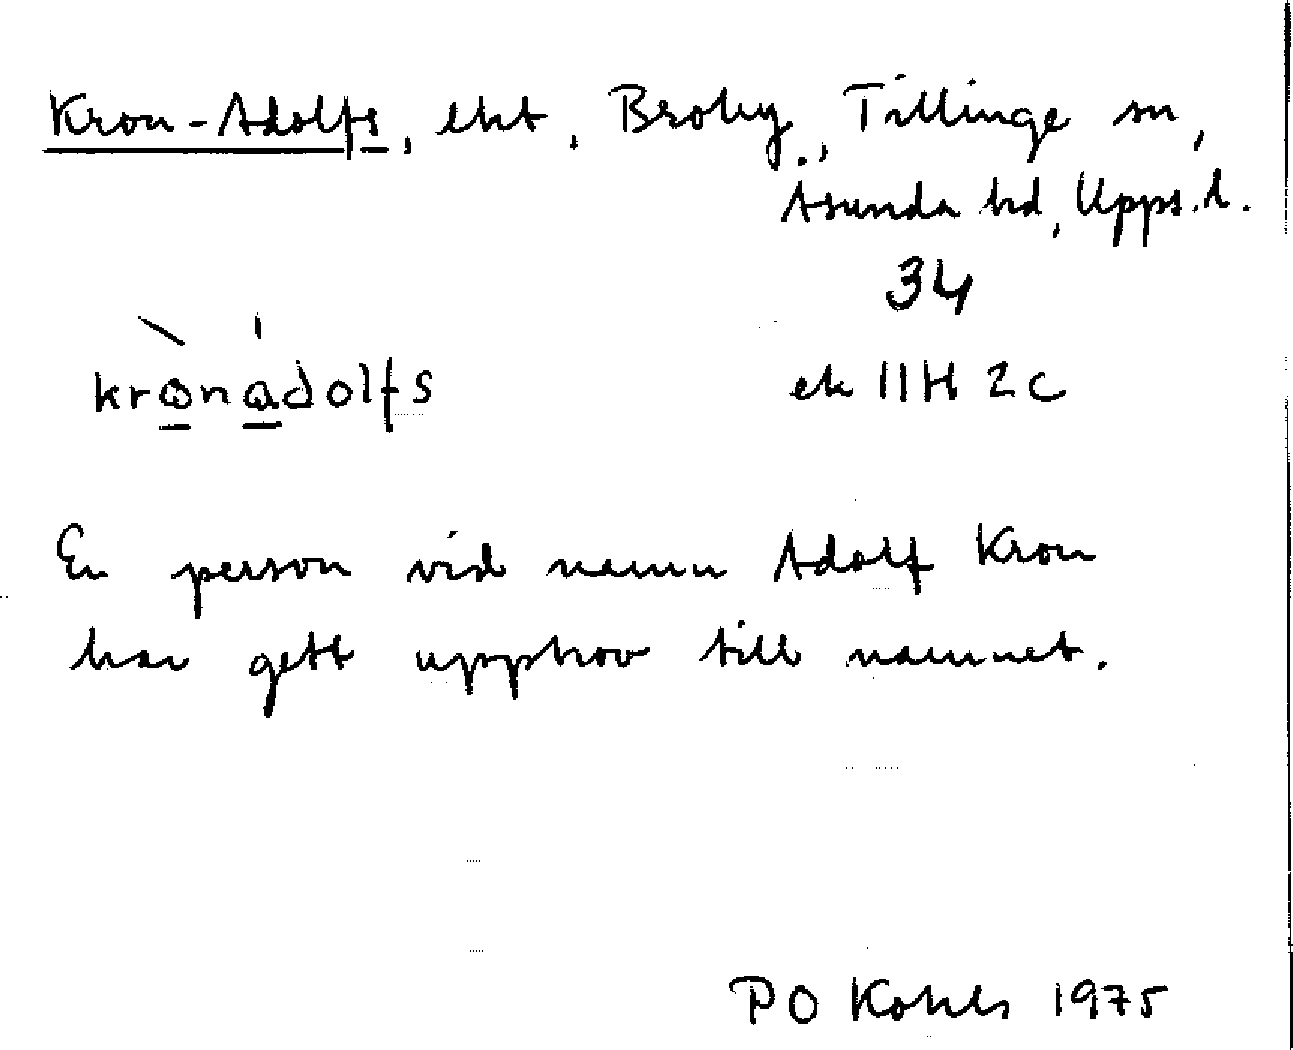 Kron-Adolfs, lht, Broby, Tillinge sn,
Åsunda hd, Upps. l.
34
krɷnadolfs
ek 11H 2c
En person vid namn Adolf Kron
har gett upphov till namnet.
PO Kohls 1975